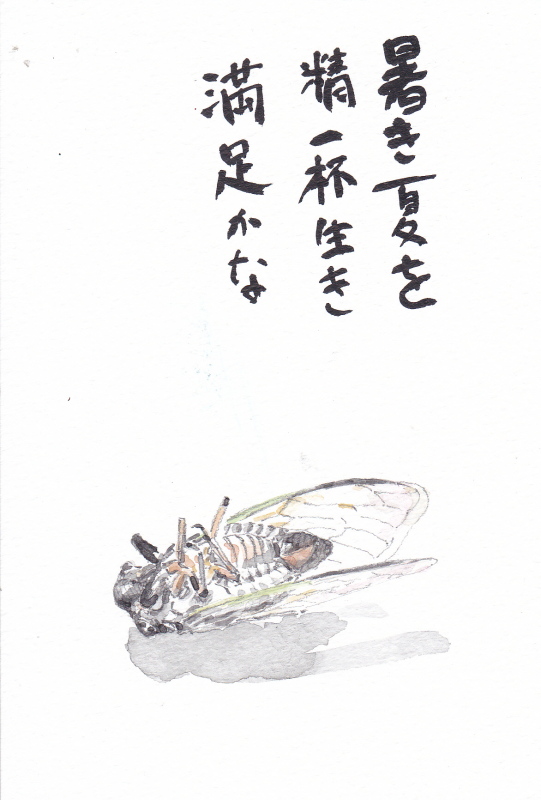 暑き夏を
精一杯生き
満足かな